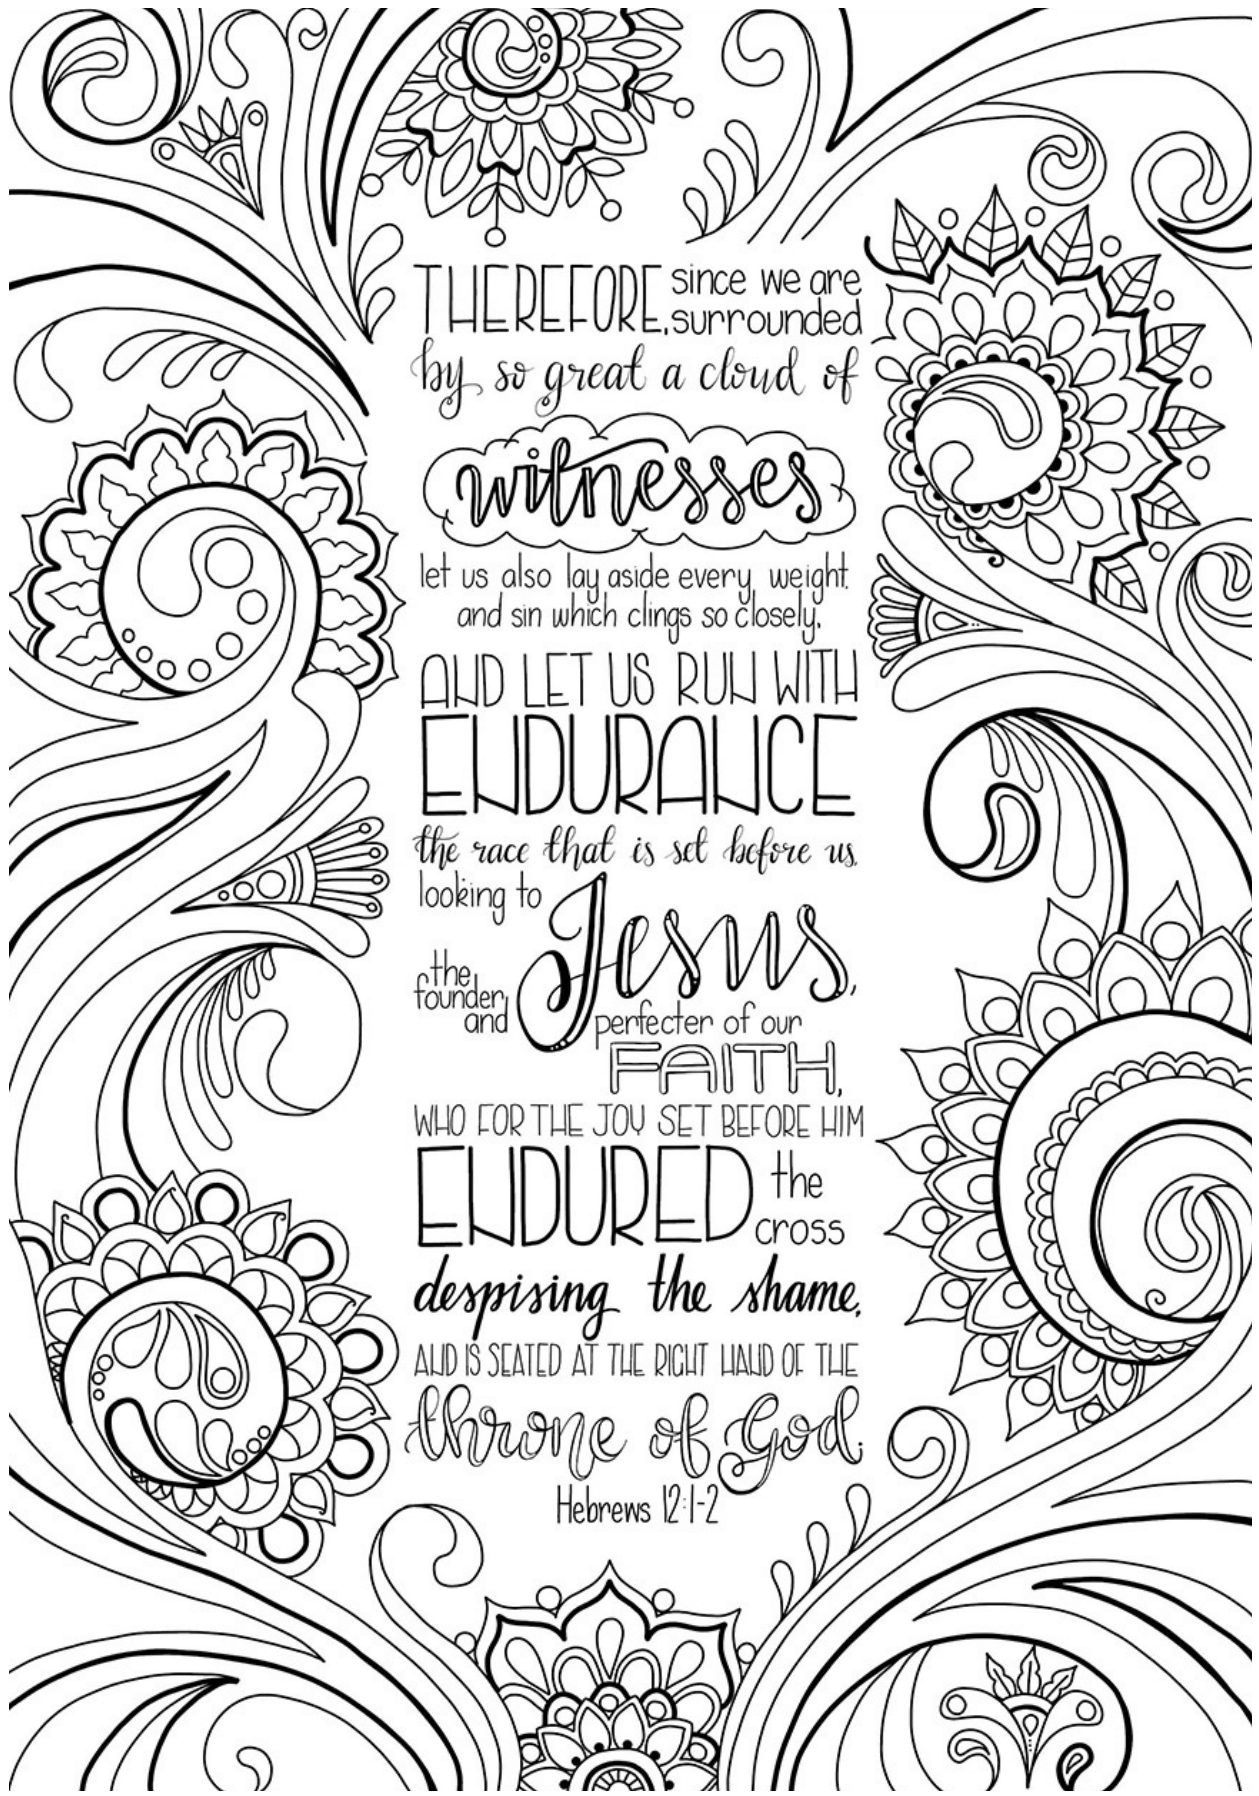 THEREFORE, since we are
surrounded
by so great a cloud of
witnesses
let us also lay aside every weight,
and sin which clings so closely,
AND LET US RUN WITH
ENDURANCE
the race that is set before us,
looking to
Jesus,
the
founder
and
perfecter of our
FAITH,
WHO FOR THE JOY SET BEFORE HIM
ENDURED the
cross
despising the shame,
AND IS SEATED AT THE RIGHT HAND OF THE
throne of God.
Hebrews 12:1-2